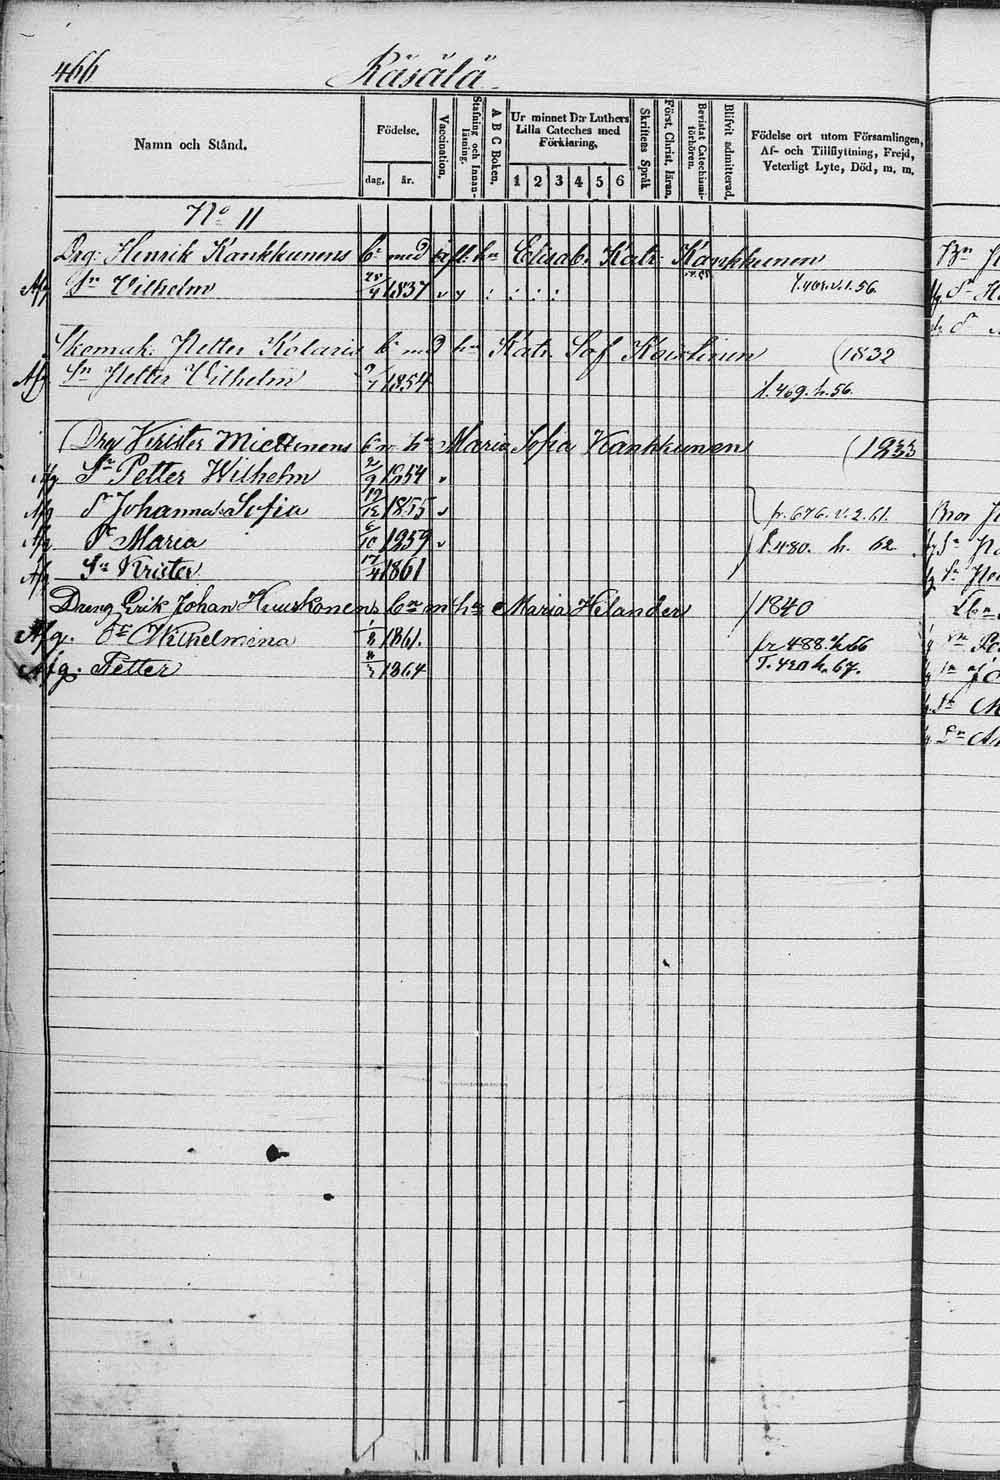 466 Räsälä
Namn och Stånd.
Födelse.
dag. år.
Vaccination.
Stafning och Innan-läsning.
A B C Boken.
Ur minnet D:r Luthers
Lilla Cateches med
Förklaring,
1 2 3 4 5 6
Skriftens Språk
Först. Christ. läran.
Bevistat Catechismi-förhören.
Blifvit admitterad.
Födelse ort utom Församlingen,
Af- och Tillflyttning, Frejd,
Veterligt Lyte, Död, m. m.
No 11
Drg: Henrik Kankkunens bn med hn Elisab. Katr. Kankkunen
Afg Sn Vilhelm 25/4 1837 56.
Skomak. Petter Kolaris bn med hn Katr. Sof (1832
Afg Sn Petter Vilhelm 1854 f. 469. h. 56.
Drg Krister Miettinens bn m hn Maria Sofia Kankkunen (1833
Afg Sn Petter Wilhelm 2/9 1854
Afg Dr Johanna Sofia 19/12 1855 fr. 676. v. 2. 61.
Afg Dr Maria 6/10 1859 f. 480. h. 62.
Afg Sn Krister 17/4 1861
Dreng Erik Johan Huuskonens bn m hn Maria Helander 1840
Afg. Dr Wilhelmina 1/8 1861. fr 488. h 66
Afg. Petter 1864 T. 420 h. 67.